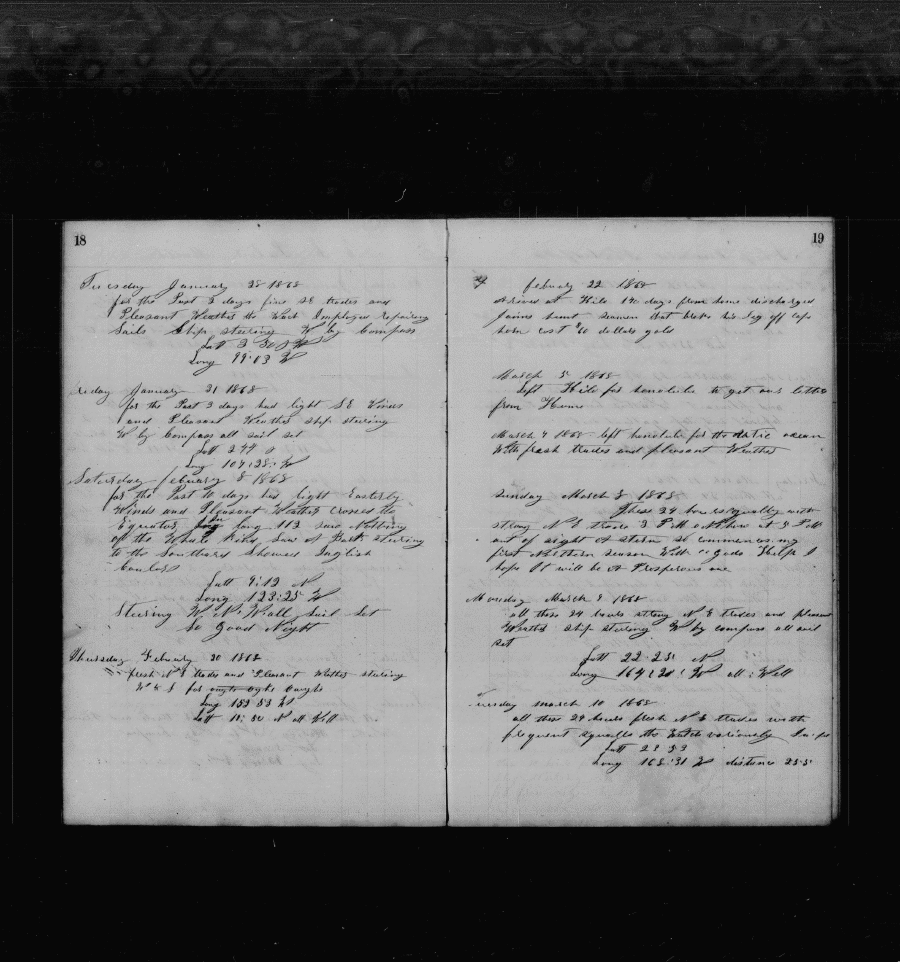 18
Tuesday January 28 1868
for the Past 3 days fine SE trades and
Pleasant Weather the Watch Employed repairing
Sails Ship steering W by Compass
Latt 3 30 S
Long 99:03 W
January 31 1868
for the Past 3 days had light S.E Winds
and Pleasant Weather ship steering
W by Compass all sail set
Latt
Long 104:28 W
Saturday february 8 1868
for the Past 10 days had light Easterly
Winds and Pleasant Weather Crossed the
Equator in Long 113 saw Nothing
of the Whale Kind Saw A Bark steering
to the Southard Showed Inglish
Coulors
Latt 9:12 N
Long 123:25 W
Steering W N W all Sail Set
So Good Night
Thursday February 20 1868
fresh N E trades and Pleasant Weather steering
W & S for
Long 153 53 W
Latt N all Well
19
february 22 1868
Arived at Hilo days from home discharged
James seamen that broke his leg off Cape
horn cost dollars gold
March 5 1868
Left Hilo for honolulu to get our letters
from Home
March 7 1868 left honolulu for the Artic ocean
With fresh trades and pleasant Weather
Sunday March 8 1868
These 24 hours squally with
strong N E trades 3 P.M at 9 P.M
out of sight A stern so commences my
first Northern season With Gods help I
hope It will be A Prosperous one
Monday March 9 1868
all these 24 hours strong N E trades and pleasant
Weather ship steering W by compass all sail
set
Latt 22:25 N
Long 164:20 W all Well
Tuesday march 10 1868
all these 24 hours fresh N E trades with
frequent squalls the Watch variously
Latt 23 53
Long 168:31 W distance 255